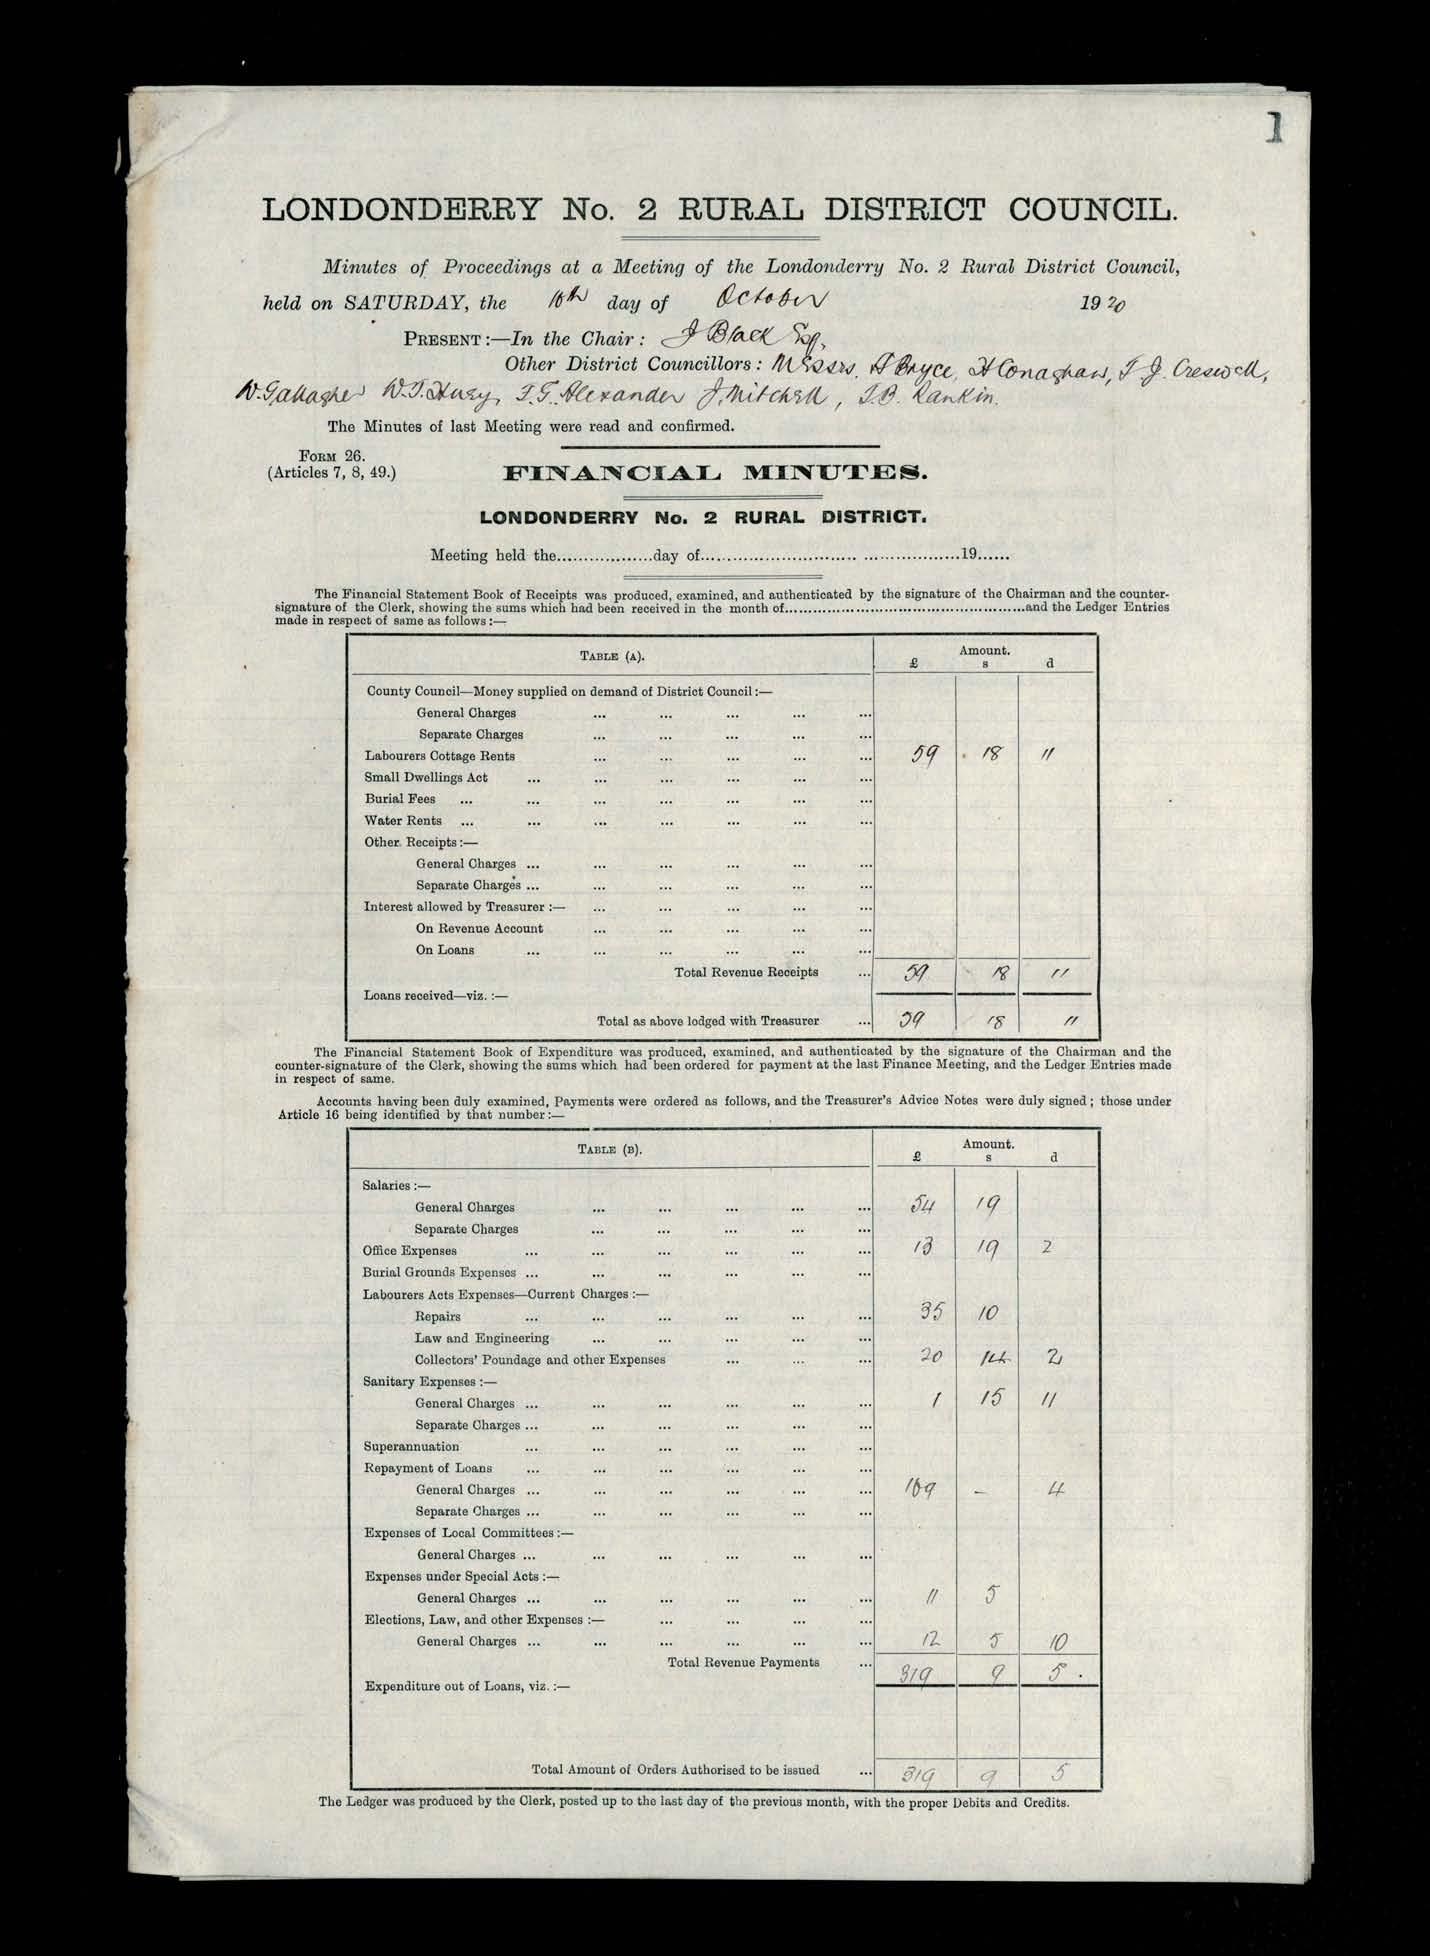 1
LONDONDERRY No. 2 RURAL DISTRICT COUNCIL.
Minutes of Proceedings at a Meeting of the Londonderry No. 2 Rural District Council,
held on SATURDAY, the 16th day of October 1920
PRESENT:—In the Chair: J Black Esq,
Other District Councillors: Messrs. Bryce, H Conaghan, T J. Creswell,
W. Gallagher W. T. Huey, T. G. Alexander J. Mitchell, T. B. Rankin.
The Minutes of last Meeting were read and confirmed.
FORM 26.
(Articles 7, 8, 49.)
FINANCIAL MINUTES.
LONDONDERRY No. 2 RURAL DISTRICT.
Meeting held the..................day of.................................................19......
The Financial Statement Book of Receipts was produced, examined, and authenticated by the signature of the Chairman and the counter-
signature of the Clerk, showing the sums which had been received in the month of....................................................and the Ledger Entries
made in respect of same as follows:—
TABLE (A). Amount.
£ s d
County Council—Money supplied on demand of District Council:—
General Charges ... ... ... ... ...
Separate Charges ... ... ... ... ...
Labourers Cottage Rents ... ... ... ... ... 59 18 11
Small Dwellings Act ... ... ... ... ... ...
Burial Fees ... ... ... ... ... ... ...
Water Rents ... ... ... ... ... ... ...
Other Receipts:—
General Charges ... ... ... ... ... ...
Separate Charges ... ... ... ... ... ...
Interest allowed by Treasurer:— ... ... ... ... ...
On Revenue Account ... ... ... ... ...
On Loans ... ... ... ... ... ...
Total Revenue Receipts ... 59 18 11
Loans received—viz.:—
Total as above lodged with Treasurer ... 59 18 11
The Financial Statement Book of Expenditure was produced, examined, and authenticated by the signature of the Chairman and the
counter-signature of the Clerk, showing the sums which had been ordered for payment at the last Finance Meeting, and the Ledger Entries made
in respect of same.
Accounts having been duly examined, Payments were ordered as follows, and the Treasurer's Advice Notes were duly signed; those under
Article 16 being identified by that number:—
TABLE (B). Amount.
£ s d
Salaries:—
General Charges ... ... ... ... ... 54 19
Separate Charges ... ... ... ... ...
Office Expenses ... ... ... ... ... ... 13 19 2
Burial Grounds Expenses ... ... ... ... ... ...
Labourers Acts Expenses—Current Charges:—
Repairs ... ... ... ... ... ... 35 10
Law and Engineering ... ... ... ... ...
Collectors' Poundage and other Expenses ... ... ... 20 14 2
Sanitary Expenses:—
General Charges ... ... ... ... ... ... 1 15 11
Separate Charges ... ... ... ... ... ...
Superannuation ... ... ... ... ... ...
Repayment of Loans ... ... ... ... ... ...
General Charges ... ... ... ... ... ... 169 - 4
Separate Charges ... ... ... ... ... ...
Expenses of Local Committees:—
General Charges ... ... ... ... ... ...
Expenses under Special Acts:—
General Charges ... ... ... ... ... ... 11 5
Elections, Law, and other Expenses:— ... ... ... ...
General Charges ... ... ... ... ... ... 12 5 10
Total Revenue Payments ... 319 9 5.
Expenditure out of Loans, viz.:—
Total Amount of Orders Authorised to be issued ... 319 9 5
The Ledger was produced by the Clerk, posted up to the last day of the previous month, with the proper Debits and Credits.